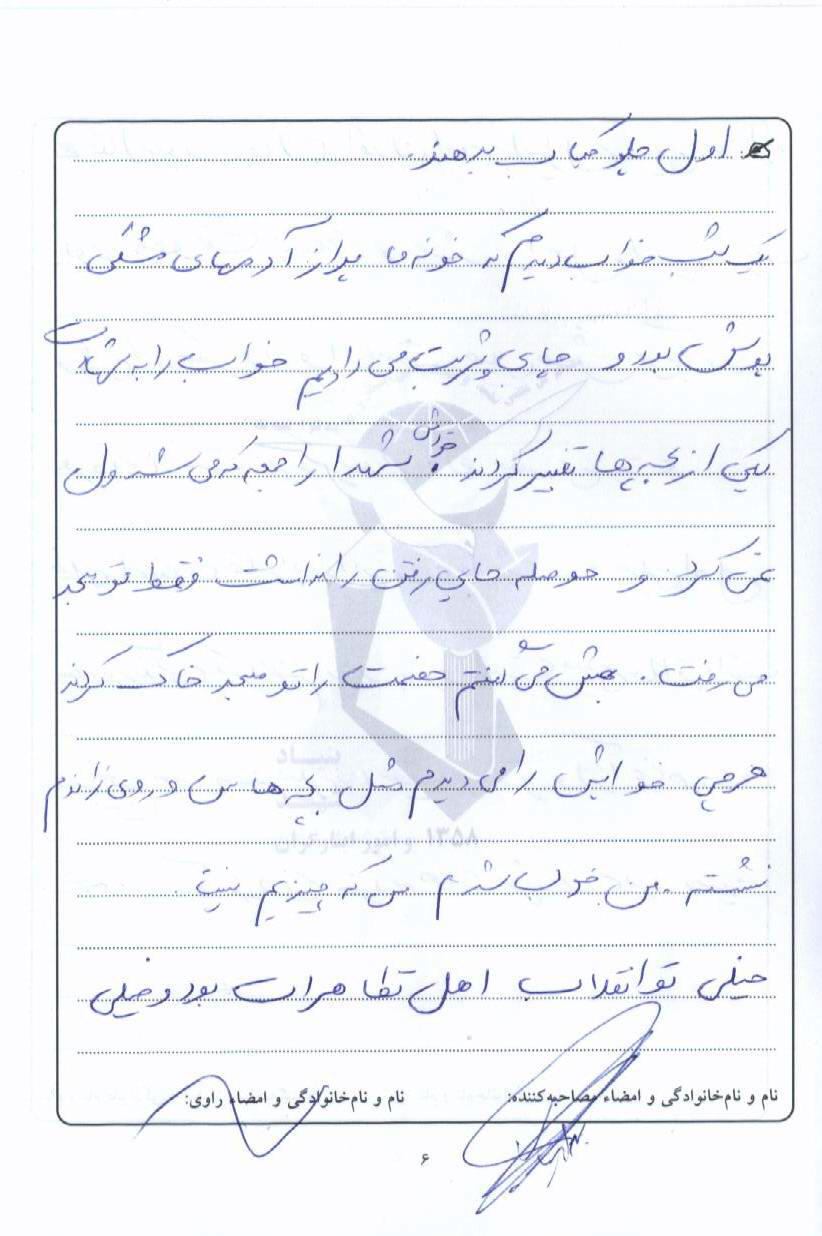 اول چلو کباب بدهند.
یک شب خواب دیدم که خونه ما پر از آدمهای مشکی
پوش بود و چای و شربت می دادیم خواب را به شهادت
یکی از بچه ها تعبیر کردند. شهدا را جمعه که می شد ول
نمی کرد و حوصله جایی رفتن را نداشت فقط تو مسجد
می رفت. بهش می گفتم را تو مسجد خاک کردند
هرچی خوابش را می دیدم مثل بچه هاس و روی زانوم
نشسته. من خوب شدم من که چیزیم نیست.
خیلی تو انقلاب اهل تظاهرات بود و خیلی
نام و نام‌خانوادگی و امضاء مصاحبه‌کننده:
نام و نام‌خانوادگی و امضاء راوی:
۶
بنیاد
و امور ایثارگران ۱۳۵۸